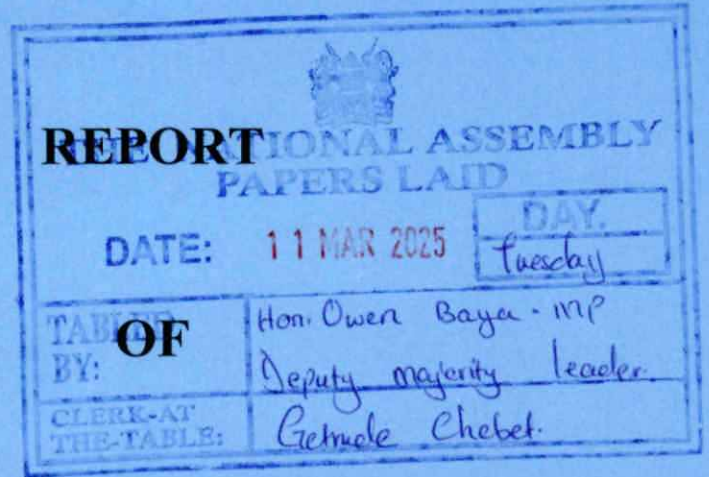 REPORT
THE NATIONAL ASSEMBLY
PAPERS LAID
DATE: 11 MAR 2025
DAY.
Tuesday
OF
TABLED
BY:
Hon. Owen Baya - MP
Deputy majority leader.
CLERK-AT
THE-TABLE:
Getrude Chebet.